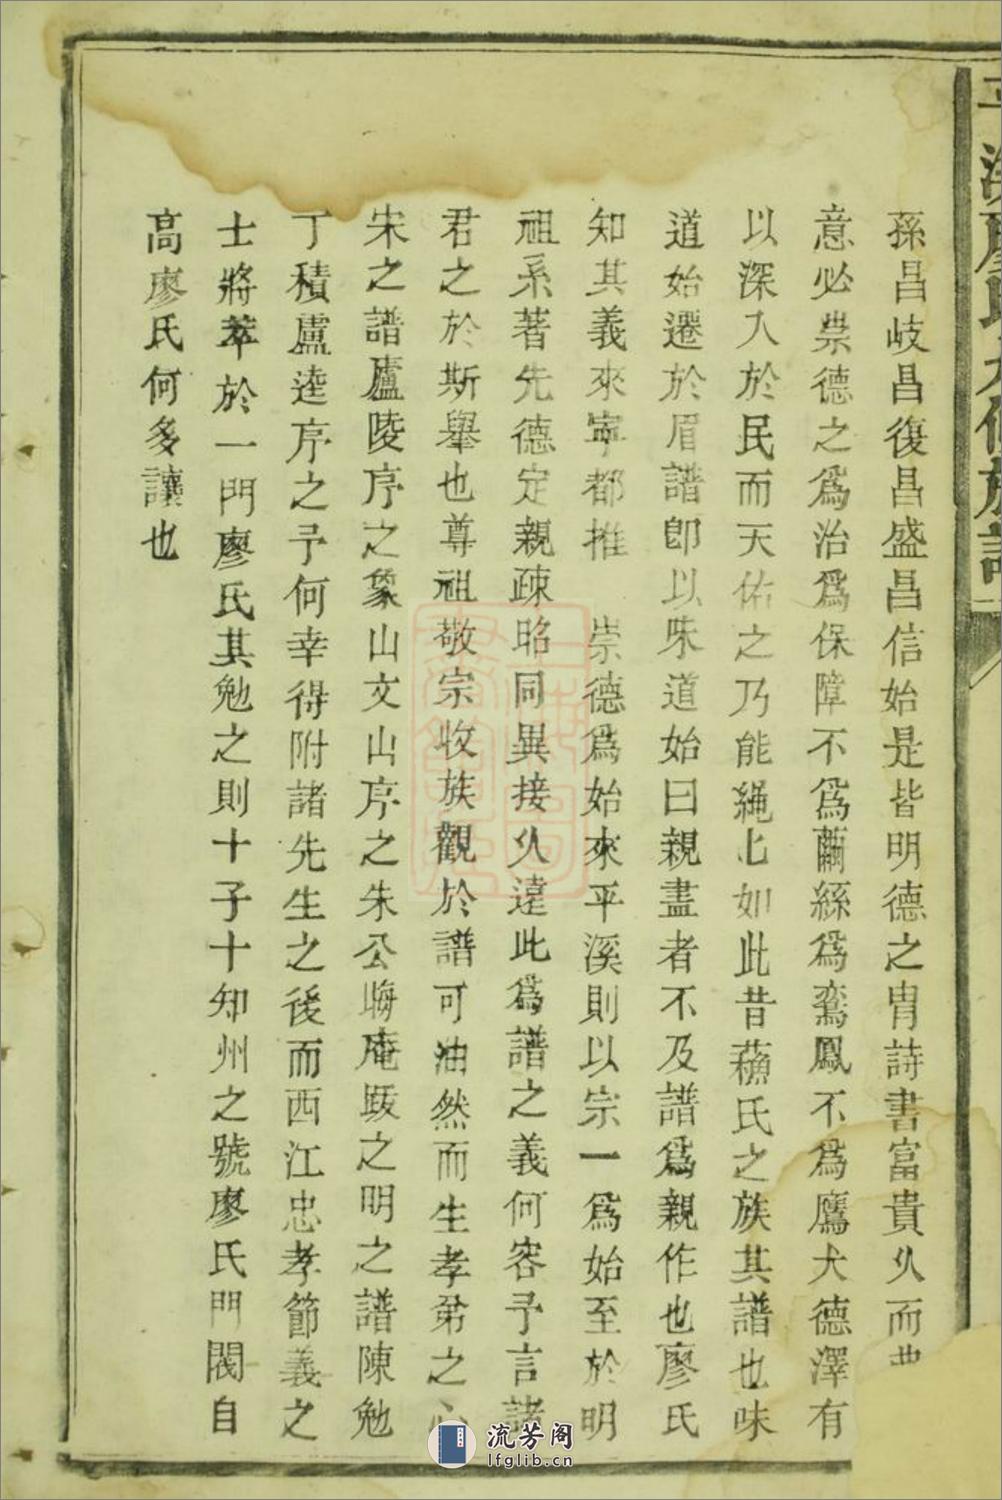 溪廖氏
孫昌岐昌復昌盛昌信始是皆明德之胄詩書富貴久而
意必崇德之為治為保障不為繭絲為鸞鳳不為鷹犬德澤有
以深入於民而天佑之乃能繩上如此昔蘓氏之族其譜也味
道始遷於眉譜即以味道始曰親盡者不及譜為親作也廖氏
知其義來寧都推 崇德為始來平溪則以宗一為始至於明
祖系著先德定親疎昭同異接久遠此為譜之義何容予言諸
君之於斯舉也尊祖敬宗收族觀於譜可油然而生孝弟之心
宋之譜廬陵序之象山文山序之朱公晦庵跋之明之譜陳勉
丁積盧逵序之予何幸得附諸先生之後而西江忠孝節義之
士將萃於一門廖氏其勉之則十子十知州之號廖氏門閥自
高廖氏何多讓也
流芳阁
lfglib.cn